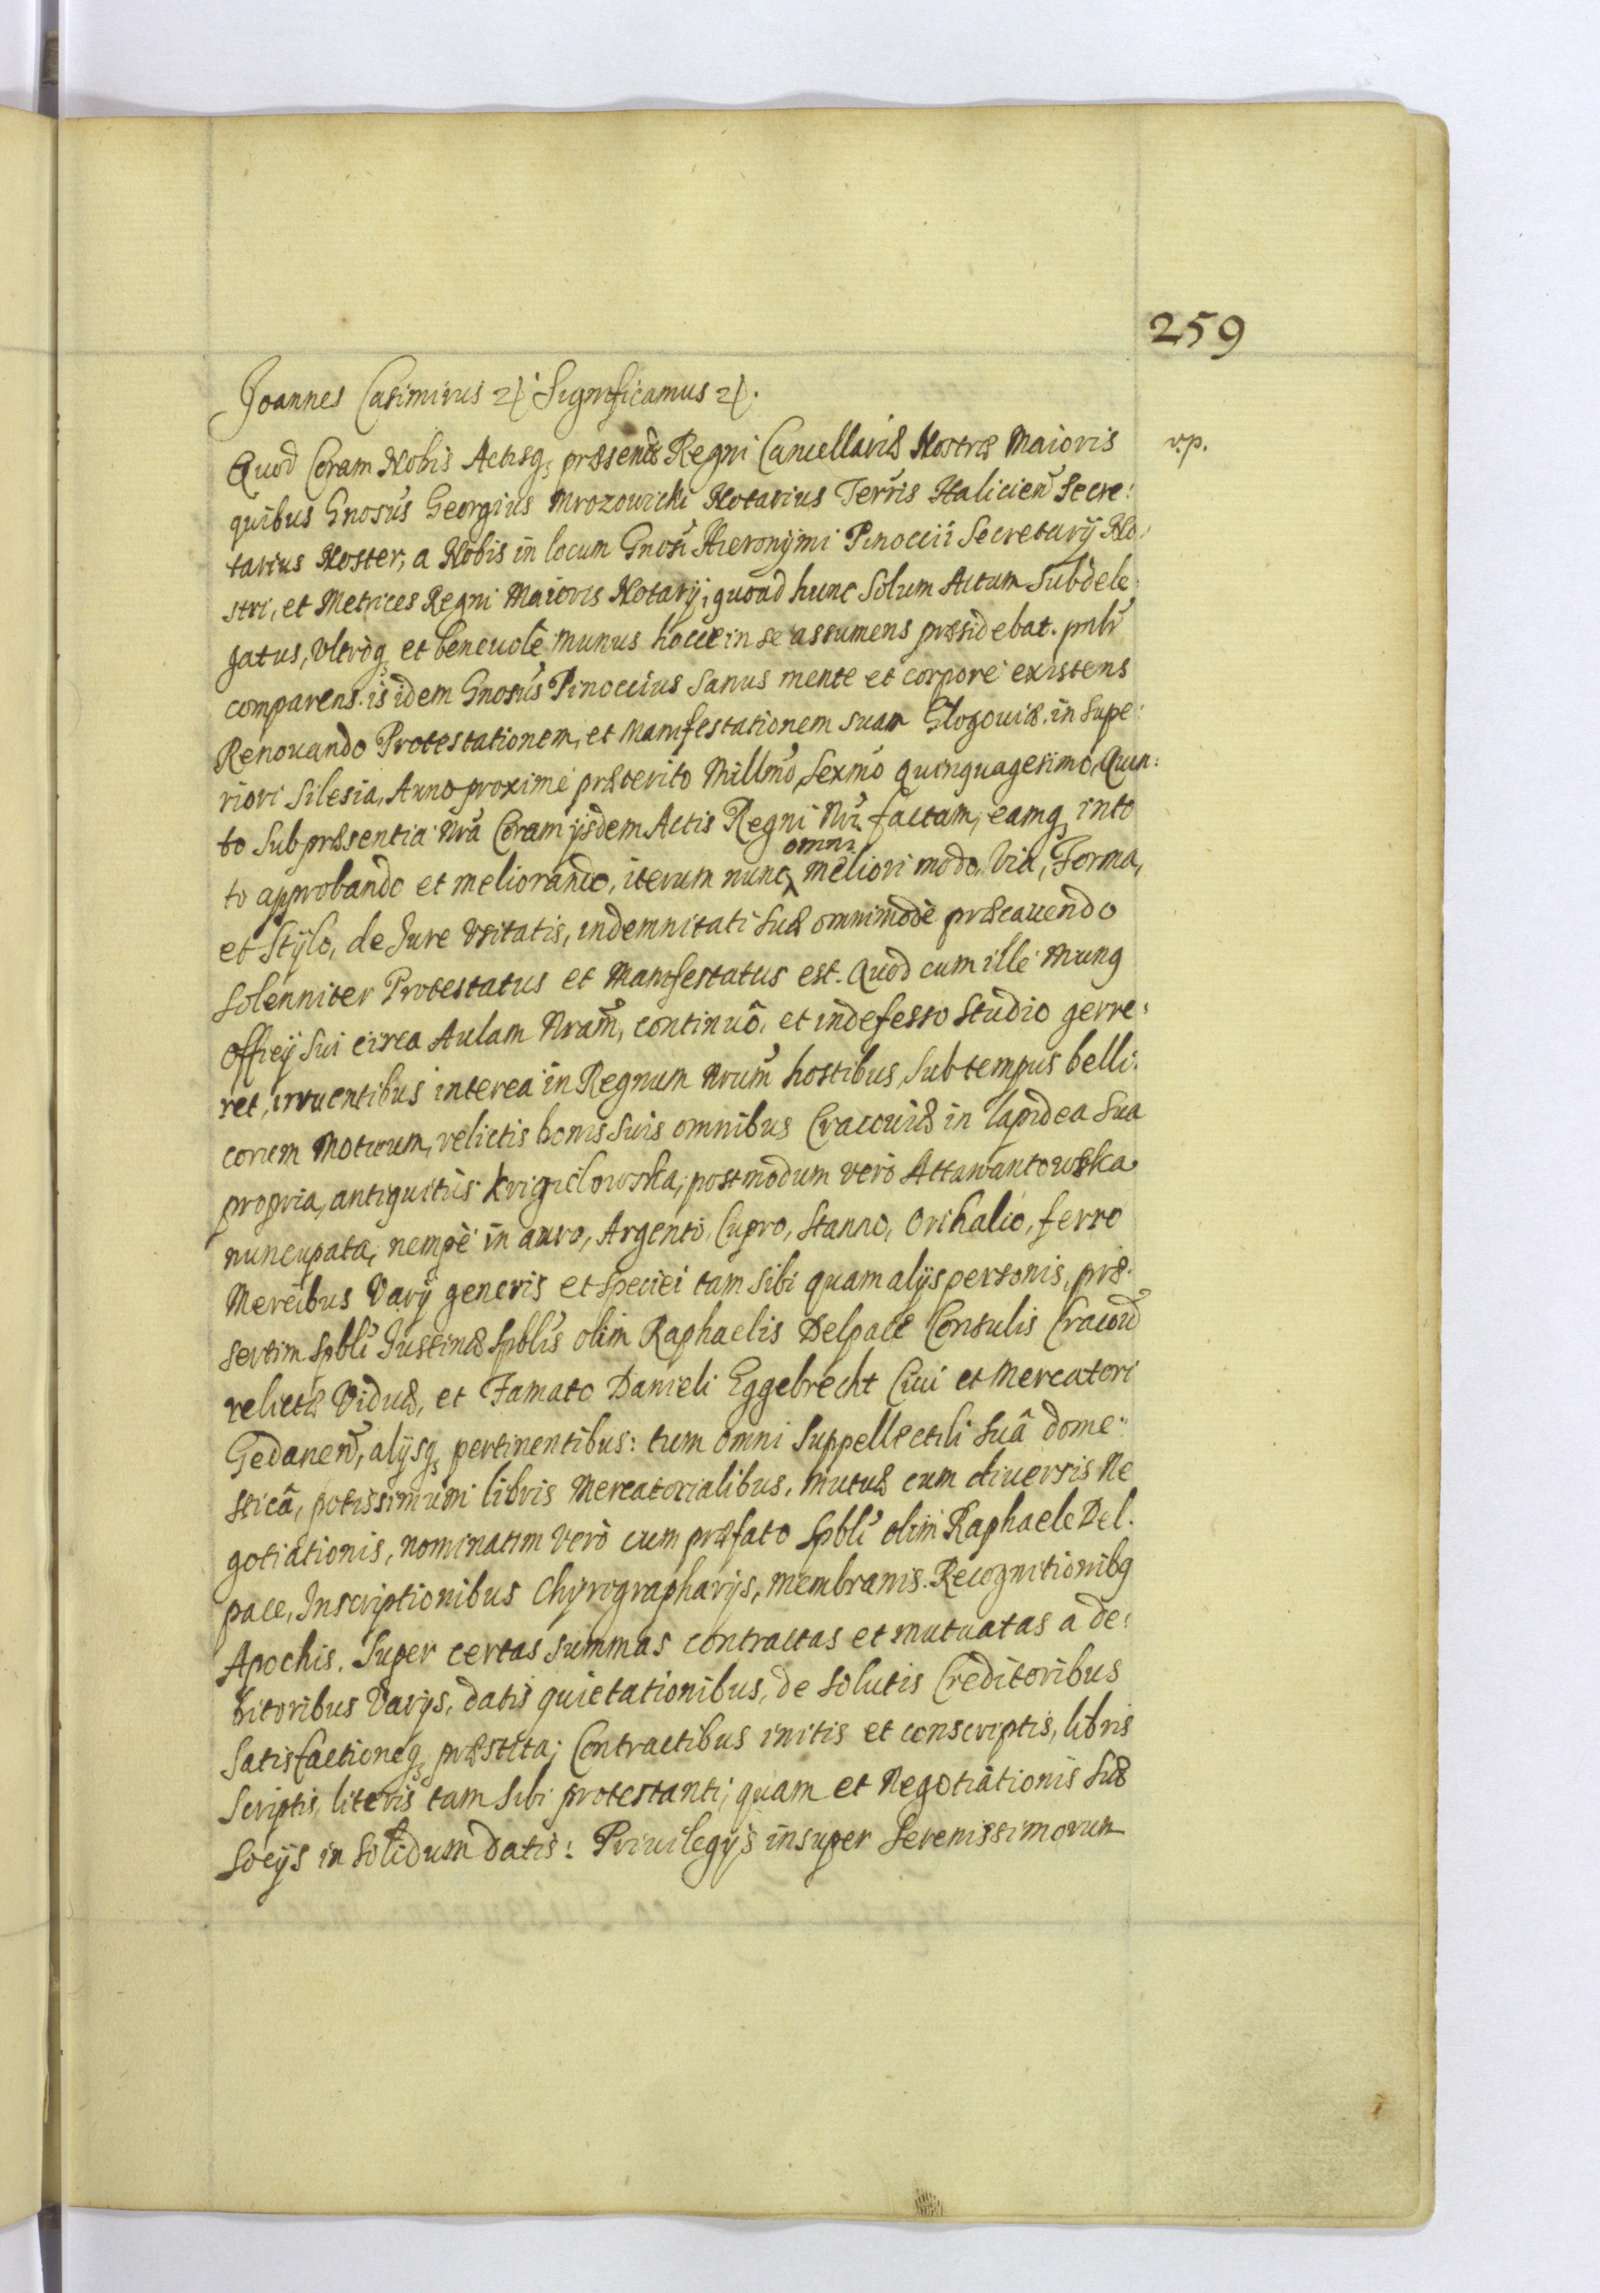 259
Joannes Casimirus &c. Significamus &c.
Quod Coram Nobis Actisq; præsentibus Regni Cancellariæ Nostræ Maioris
v.p.
quibus Gnosus Georgius Mrozowicki Notarius Terris Haliciens Secre:
tarius Noster, a Nobis in locum Gnosi Hieronymi Pinoccii Secretarij No:
stri, et Metrices Regni Maioris Notarij, quoad hunc Solum Actum Subdele:
gatus, Vltroq; et beneuolè munus hocce in se assumens præsidebat. pnlr
comparens is idem Gnosus Pinoccius Sanus mente et corpore existens
Renouando Protestationem, et Manifestationem suam Glogouiæ in Supe:
riori Silesia, Anno proximè præterito Millmo Sexmo quinquagesimo Quin:
to Sub præsentia Nra Coram ijsdem Actis Regni Nri factam, eamq; in to
to approbando et meliorando, iterum nunc omni meliori modo, Via, Forma,
et Stylo, de Jure Vsitatis, indemnitati Suæ omnimodè præcauendo
Solenniter Protestatus et Manifestatus est. Quod cum ille Munq
Officij Sui circa Aulam Nram, continuô et indefesso Studio gerre:
ret, irruentibus interea in Regnum Nrum hostibus, Sub tempus belli:
corum Motuum, relictis bonis Suis omnibus Cracouiæ in lapidea Sua
propria, antiquitùs Krigielowska, postmodum verò Attawantowska
nuncupata, nempè in auro, Argento, Cupro, Stanno, Orihalco, ferro
Mercibus Varij generis et Speciei tam Sibi quam alijs personis, præ:
sertim Spbli Justinæ Spblis olim Raphaelis Delpace Consulis Cracov
relictæ Viduæ, et Famato Danieli Eggebrecht Ciui et Mercatori
Gedanen, alijsq; pertinentibus: tum omni Suppellectili Suâ dome:
sticâ, potissimum libris Mercatorialibus, Mutuæ cum diuersis Ne
gotiationis, nominatim verò cum præfato Spbli olim Raphaele Del:
pace, Inscriptionibus Chyrographarijs, membranis. Recognitionibq
Apochis. Super certas Summas contractas et mutuatas a de:
bitoribus Varijs, datis quietationibus, de Solutis Creditoribus
Satisfactioneq; præstita; Contractibus initis et conscriptis, libris
Scriptis, literis tam Sibi protestanti, quam et Negotiationis Suæ
Socijs in Solidum datis: Priuilegijs insuper Serenissimorum